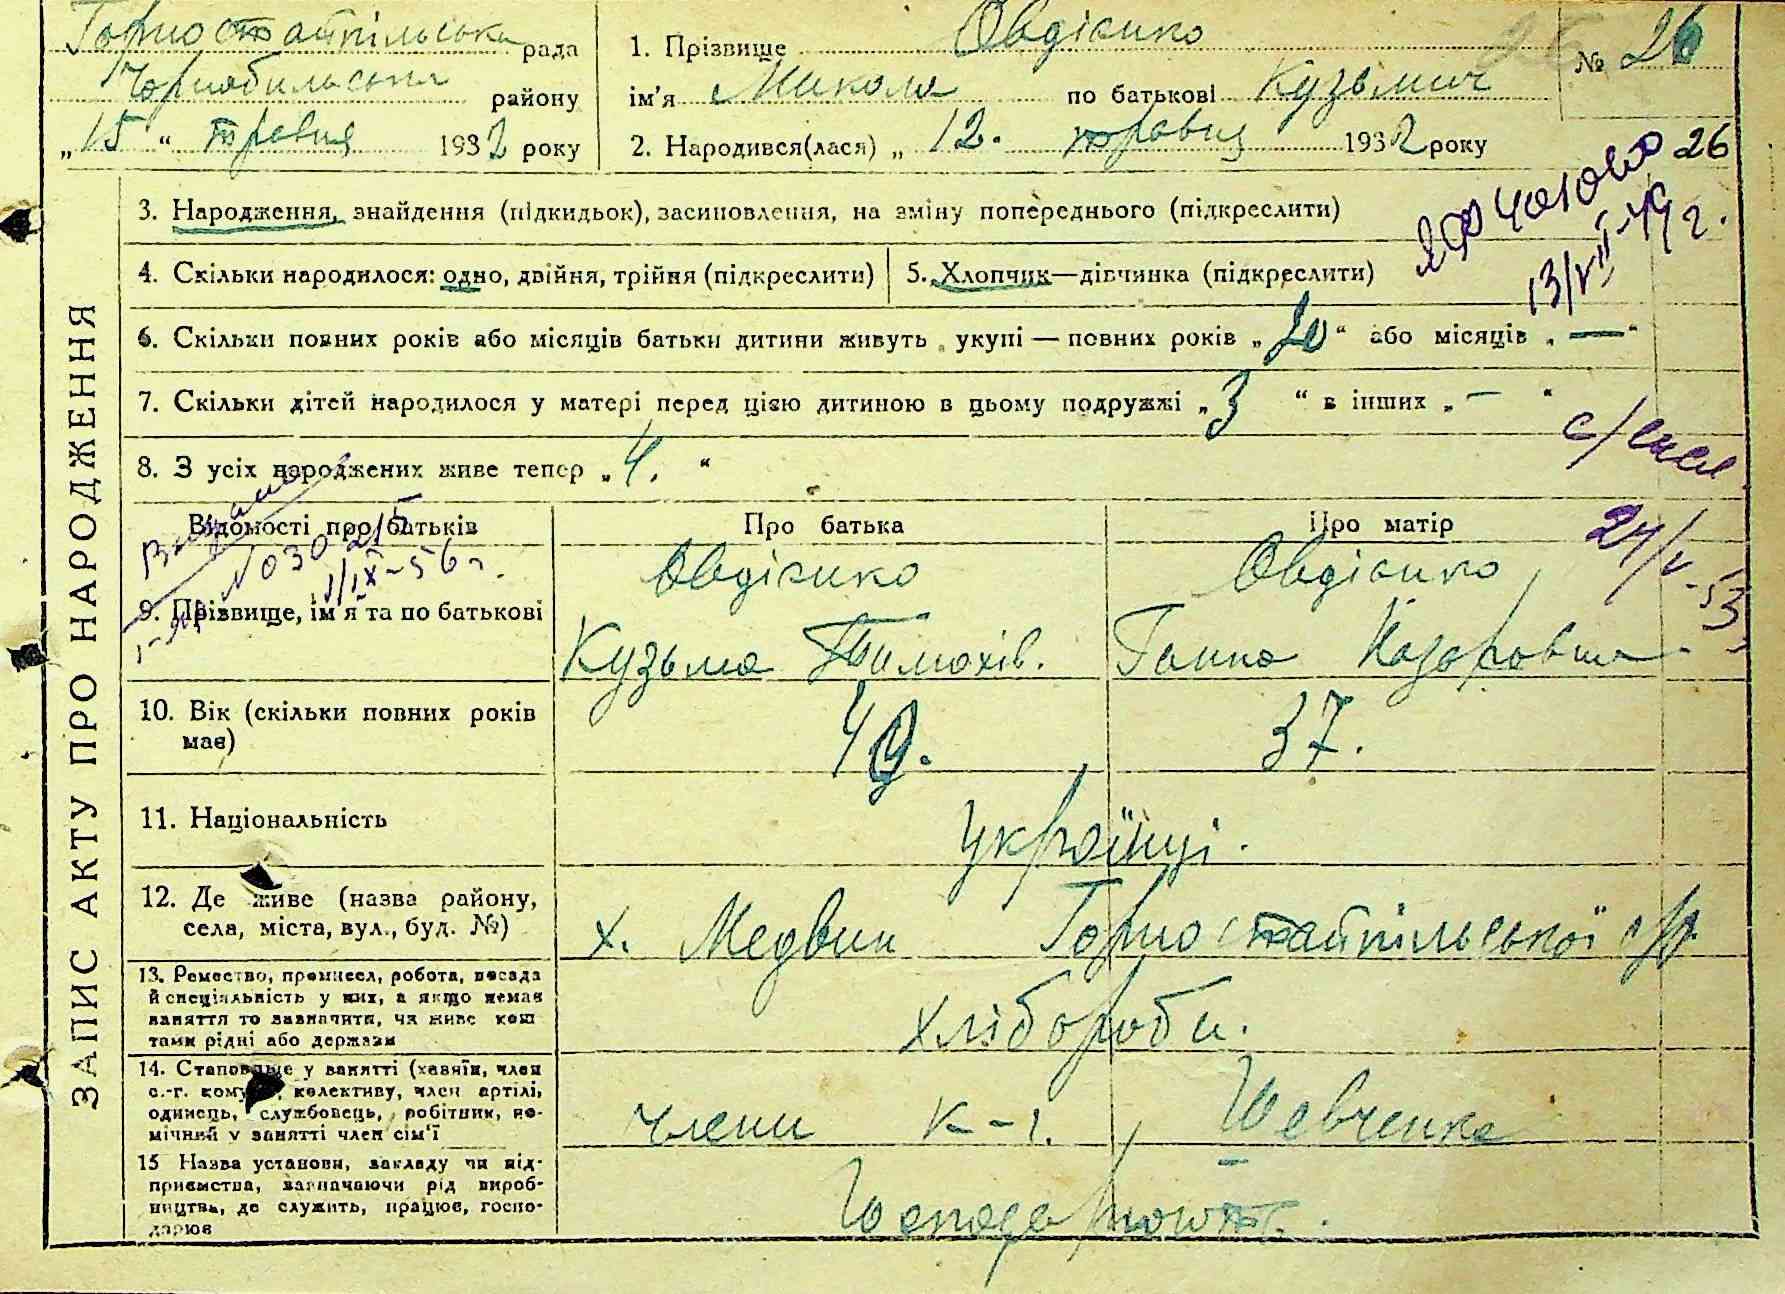 Горностайпільська рада
Чорнобильська району
„15“ травня 1932 року
1. Прізвище Овдієнко
ім'я Микола по батькові Кузьмич
№ 26
2. Народився(лася) „12. травня 1932 року
26
3. Народження, знайдення (підкидьок), засиновлення, на зміну попереднього (підкреслити)
13/VII-49 г.
4. Скільки народилося: одно, двійня, трійня (підкреслити)
5. Хлопчик—дівчинка (підкреслити)
6. Скільки повних років або місяців батьки дитини живуть укупі — повних років „20“ або місяців „—“
7. Скільки дітей народилося у матері перед цією дитиною в цьому подружжі „3“ в інших „—“
8. З усіх народжених живе тепер „4.“
24/V-53
Відомості про батьків
Про батька
Про матір
№ 030215
1/IX-56 г.
9. Прізвище, ім'я та по батькові
Овдієнко
Кузьма Тимохів.
Овдієнко
Ганна Назаровна
10. Вік (скільки повних років має)
49.
37.
11. Національність
Українці.
12. Де живе (назва району, села, міста, вул., буд. №)
х. Медвин Горностайпільської с/р
13. Ремество, промисел, робота, посада
й спеціальність у них, а якщо немає
заняття то зазначити, чи живе кош
тами рідні або держави
хлібороби.
14. Становище у занятті (хазяїн, член
с.-г. колективу, член артілі,
одинець, службовець, робітник, по-
мічний у занятті член сім'ї
члени к-г. Шевченка
15 Назва установи, закладу чи під-
приємства, зазначаючи рід вироб-
ництва, де служить, працює, госпо-
дарює
ЗАПИС АКТУ ПРО НАРОДЖЕННЯ